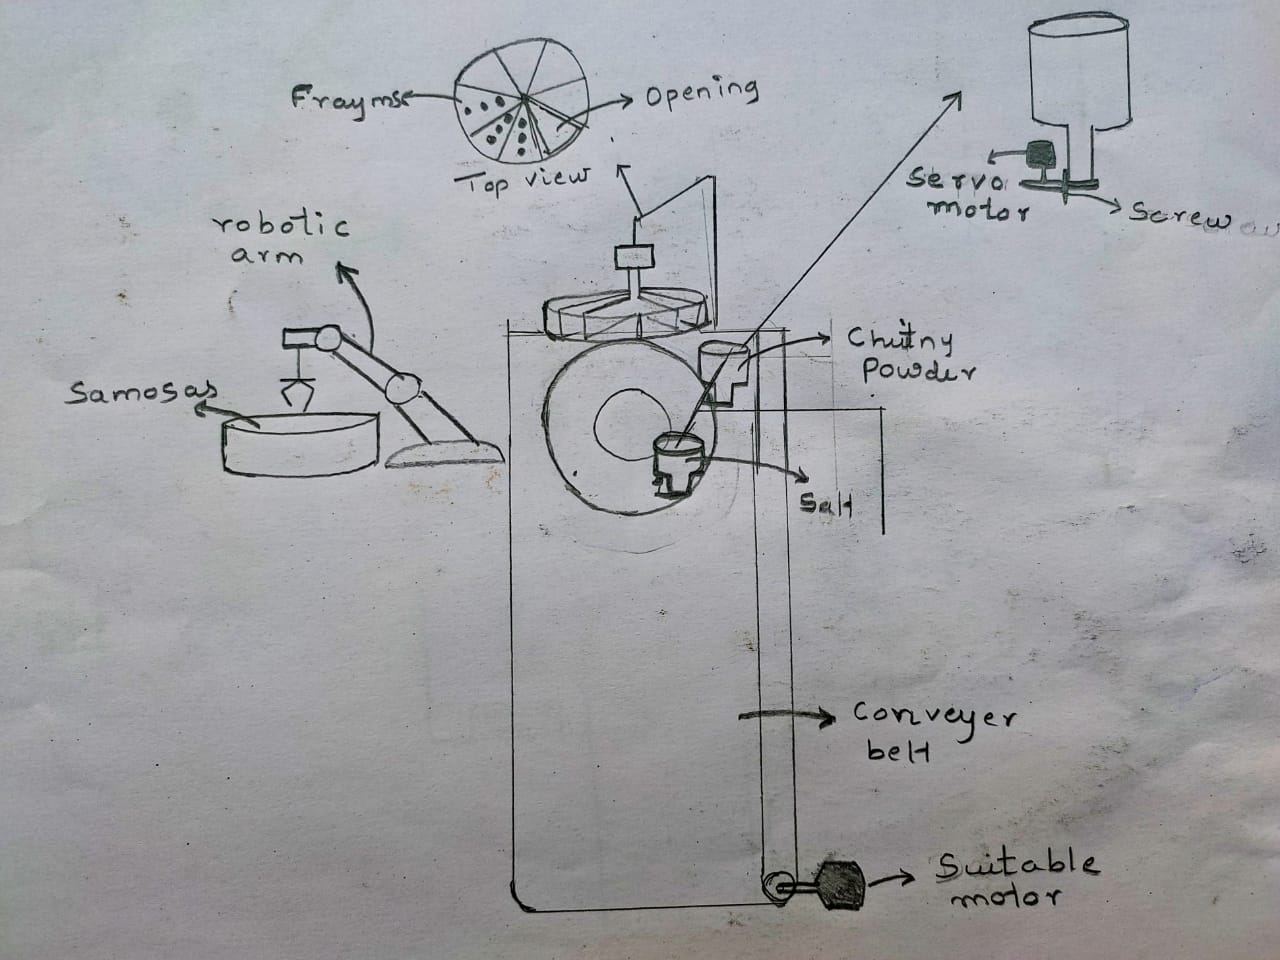 Frayms
Opening
Top view
Servo
motor
Screw
robotic
arm
Samosas
Chutny
Powder
Salt
Conveyer
belt
Suitable
motor